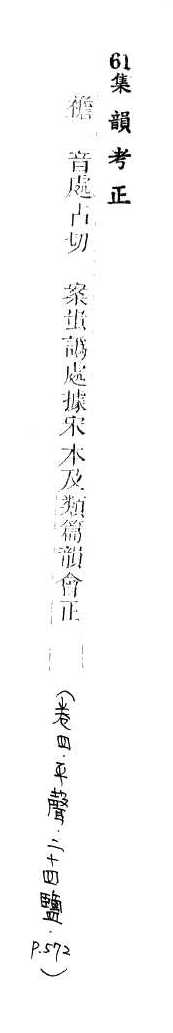 61集韻考正
襜 音處占切 案蚩譌處據宋本及類篇韻會正
(卷四.平聲.二十四鹽.P.572)